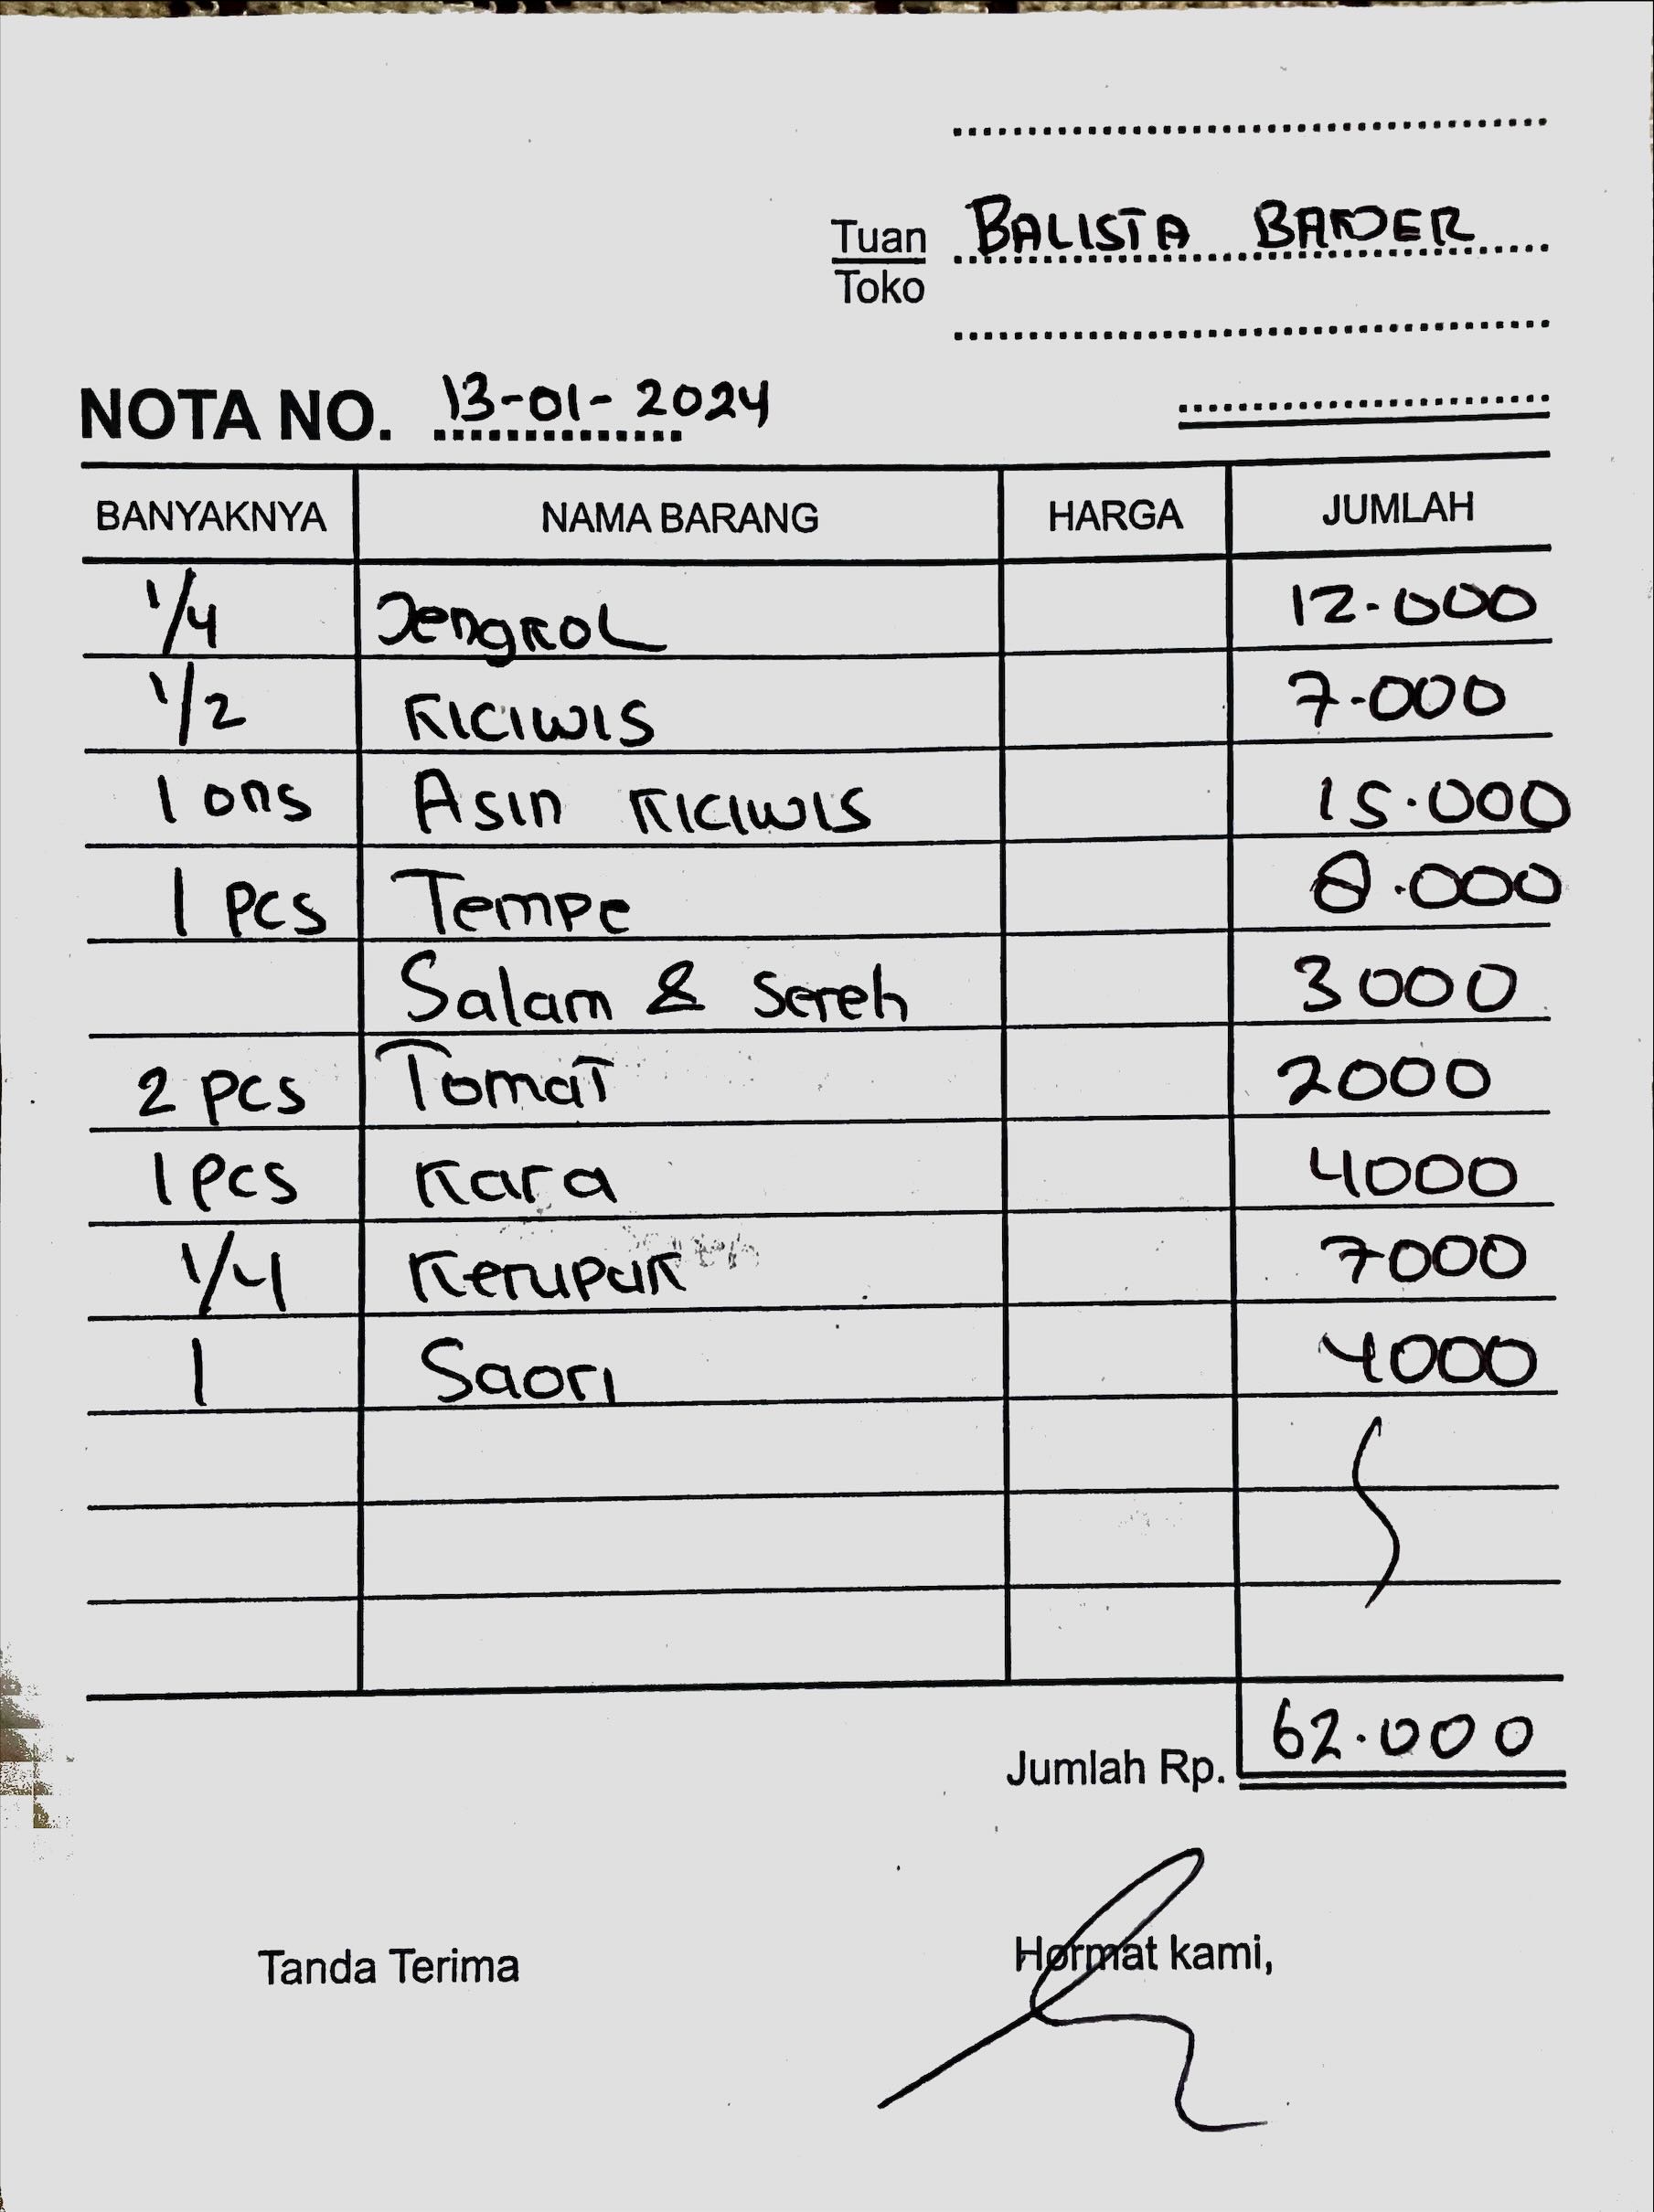 Tuan BALISTA
Toko
NOTA NO. 13-01-2024
BANYAKNYA NAMA BARANG HARGA JUMLAH
1/4 Jengkol 12.000
1/2 KICIWIS 7.000
1 ons Asin KICIWIS 15.000
1 pcs Tempe 8.000
Salam & Sereh 3000
2 pcs Tomat 2000
1 pcs Kara 4000
1/4 Kerupuk 7000
1 Saori 4000
Jumlah Rp. 62.000
Tanda Terima Hormat kami,